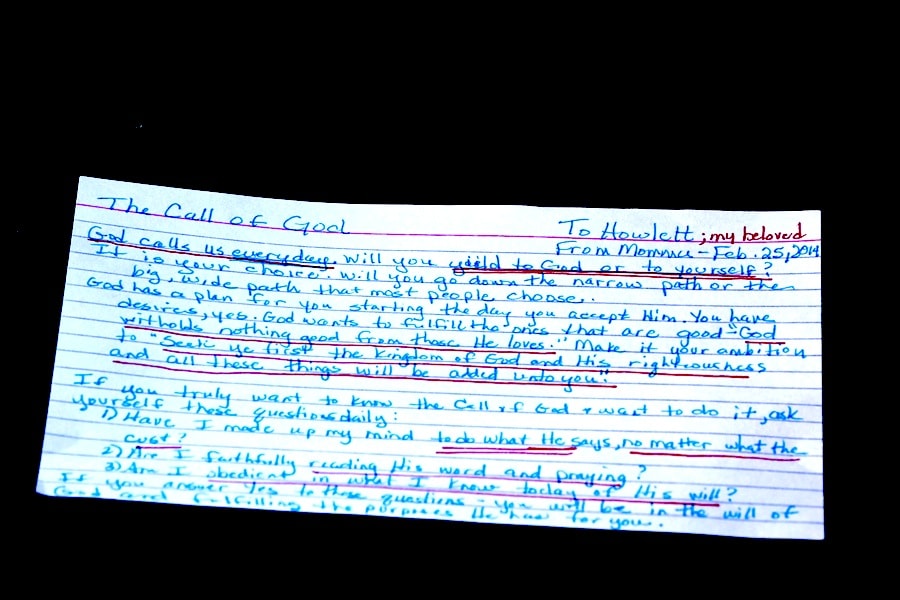 The Call of God
To Howlett; my beloved
From Momma - Feb. 25, 2014
God calls us everyday. Will you yield to God or to yourself?
It is your choice. Will you go down the narrow path or the
big, wide path that most people choose.
God has a plan for you starting the day you accept Him. You have
desires, yes. God wants to fulfill the ones that are good - "God
witholds nothing good from those He loves." Make it your ambition
to "Seek ye first the Kingdom of God and His righteousness
and all these things will be added unto you."
If you truly want to know the Call of God & want to do it, ask
yourself these questions daily:
1) Have I made up my mind to do what He says, no matter what the
cost?
2) Am I faithfully reading His word and praying?
3) Am I obedient in what I know today of His will?
If you answer Yes to these questions - you will be in the will of
God and fulfilling the purposes He has for you.